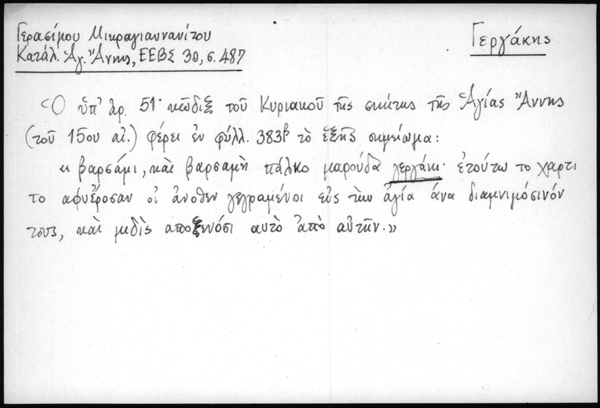 Γερασίμου Μικραγιαννανίτου
Κατάλ. Ἁγ. Ἄννης, ΕΕΒΣ 30, σ. 487
Γεργάκης
Ὁ ὑπ' ἀρ. 51 κῶδιξ τοῦ Κυριακοῦ τῆς σκήτης τῆς Ἁγίας Ἄννης
(τοῦ 15ου αἰ.) φέρει ἐν φύλλ. 383β τὸ ἑξῆς σημείωμα:
« βαρσάμι, καὶ βαρσαμὴ πάλκο μαρούδα γεργάκι· ἐτούτω το χαρτι
το αφυἔροσαν οἱ ἄνοθεν γεγραμένοι εὐς τὴν ἁγία ἄνα διαμνιμόσινόν
τους, καὶ μιδὶς αποξενόσι αυτὸ ἀπὸ αὐτὴν.»